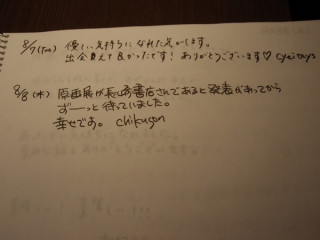 8/7(Tue) 優しい気持ちになれた気がします。
出会えて良かったです！ありがとうございます♡
8/8(水) 原画展が長崎書店さんであると発表があってから
ずーっと待っていました。
幸せです。 chikugon